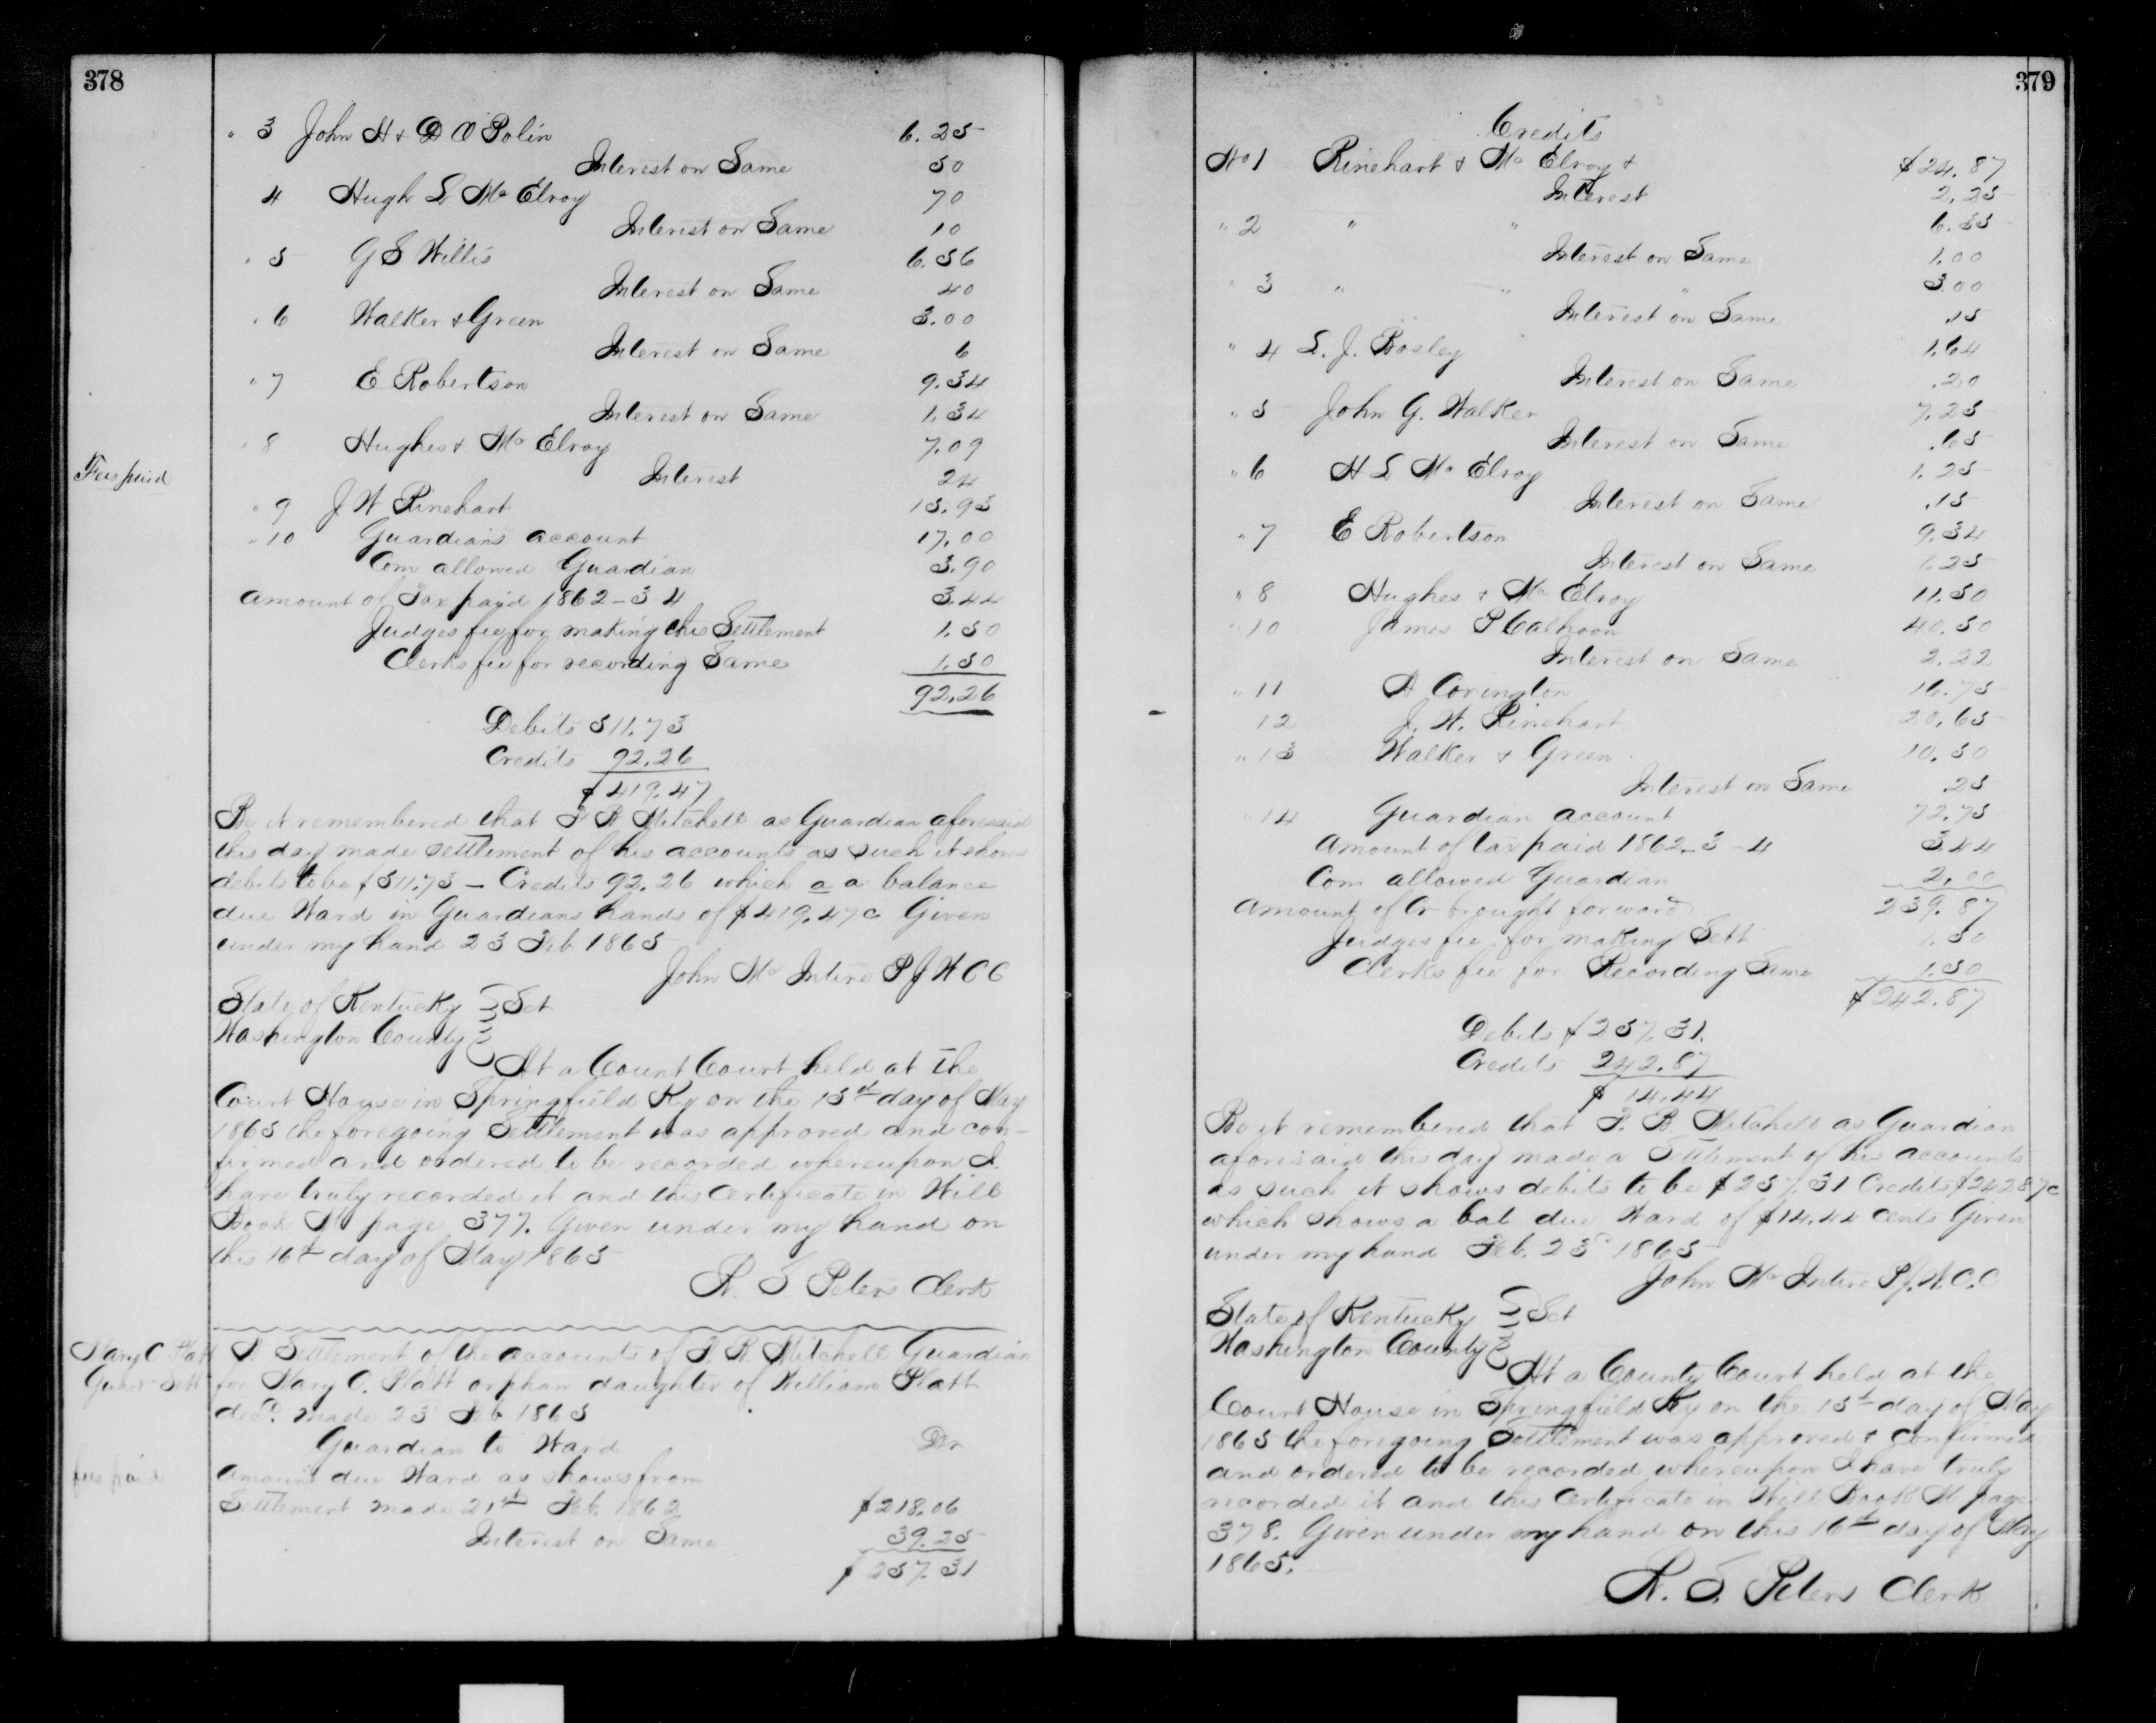 378
" 3 John H & D O Polin 6.25
Interest on Same 50
4 Hugh L Mc Elroy 70
Interest on Same 10
" 5 G S Willis 6.56
Interest on Same 40
" 6 Walker & Green 3.00
Interest on Same 6
" 7 E Robertson 9.34
Interest on Same 1.34
" 8 Hughes & Mc Elroy 7.09
Fees paid
Interest 24
" 9 J W Rinehart 15.93
" 10 Guardians account 17.00
Com allowed Guardian 3.90
Amount of Tax paid 1862-3 4 3.44
Judges fee for making this Settlement 1.50
Clerks fee for recording Same 1.50
92.26
Debits 511.73
Credits 92.26
$419.47
Be it remembered that T R Mitchell as Guardian aforesaid
this day made settlement of his accounts as such it shows
debits to be $511.73 – Credits 92.26 which a a balance
due Ward in Guardians hands of $419.47c Given
under my hand 23 Feb 1865
John Mc Intire P J W C C
State of Kentucky } Sct
Washington County }
At a Count Court held at the
Court House in Springfield Ky on the 15th day of May
1865 the foregoing Settlement was approved and con-
firmed and ordered to be recorded whereupon I
have truly recorded it and this certificate in Will
Book M page 377. Given under my hand on
this 16th day of May 1865
W. S Peters Clerk
Mary C Platt
Guar Sett
A Settlement of the accounts of T. R. Mitchell Guardian
for Mary C. Platt orphan daughter of William Platt
decd. made 23d Feb 1865
Guardian to Ward Dr
fees paid
Amount due Ward as shows from
Settlement made 21st Feb. 1862 $218.06
Interest on Same 39.25
$257.31
379
Credits
No 1 Rinehart & Mc Elroy & $24.87
Interest 2.25
" 2 " " 6.55
Interest on Same 1.00
" 3 " " 3.00
Interest on Same .15
" 4 L. J. Bosley 1.64
Interest on Same .20
" 5 John G. Walker 7.25
Interest on Same .65
" 6 H L Mc Elroy 1.25
Interest on Same .15
" 7 E Robertson 9.34
Interest on Same 1.25
" 8 Hughes & Mc Elroy 11.50
" 10 James P Calhoon 40.50
Interest on Same 2.22
" 11 A Covington 16.75
12 J. W. Rinehart 20.65
" 13 Walker & Green 10.50
Interest on Same .25
" 14 Guardian account 72.75
Amount of tax paid 1862-3-4 3.44
Com allowed Guardian 2.00
Amount of Cr brought forward 239.87
Judges fee for making Sett 1.50
Clerks fee for Recording Same 1.50
$242.87
Debits $257.31.
Credits 242.87
$14.44
Be it remembered that T. R. Mitchell as Guardian
aforesaid this day made a Settlement of his accounts
as such it shows debits to be $257.31 Credits $242.87c
which shows a bal due Ward of $14.44 cents Given
under my hand Feb. 23d 1865
John Mc Intire P. J. W. C. C
State of Kentucky } Sct
Washington County }
At a County Court held at the
Court House in Springfield Ky on the 15th day of May
1865 the foregoing Settlement was approved & confirmed
and ordered to be recorded whereupon I have truly
recorded it and this certificate in Will Book M page
378. Given under my hand on this 16th day of May
1865.
W. S. Peters Clerk